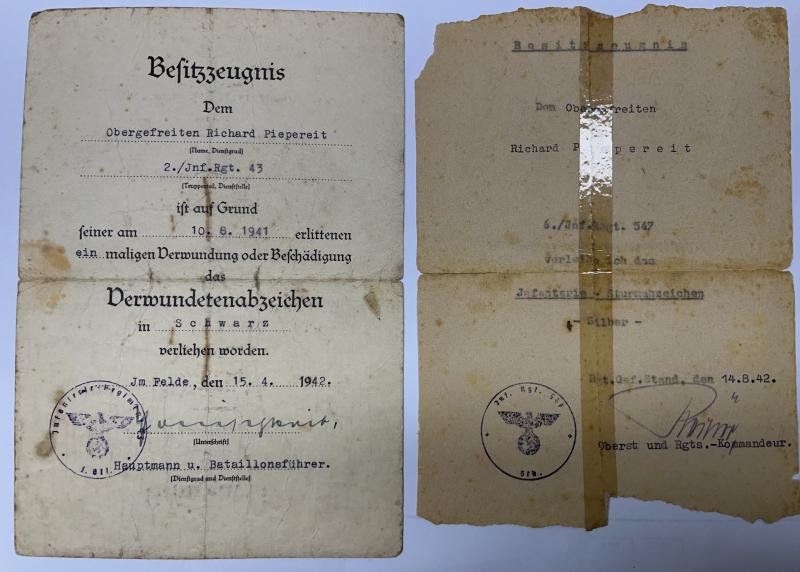 Besitzzeugnis
Dem
Obergefreiten Richard Piepereit
(Name, Dienstgrad)
2./Jnf.Rgt. 43
(Truppenteil, Dienststelle)
ist auf Grund
seiner am 10. 8. 1941 erlittenen
ein maligen Verwundung oder Beschädigung
das
Verwundetenabzeichen
in Schwarz
verliehen worden.
Jm Felde, den 15. 4. 1942.
(Unterschrift)
Hauptmann u. Bataillonsführer.
(Dienstgrad und Dienststelle)
Besitzzeugnis
Dem Obergefreiten
Richard Piepereit
6./Jnf.Rgt. 547
verleihe ich das
Jnfanterie - Sturmabzeichen
- Silber -
Rgt.Gef.Stand, den 14.8.42.
Oberst und Rgts.-Kommandeur.
Jnf. Rgt. 547